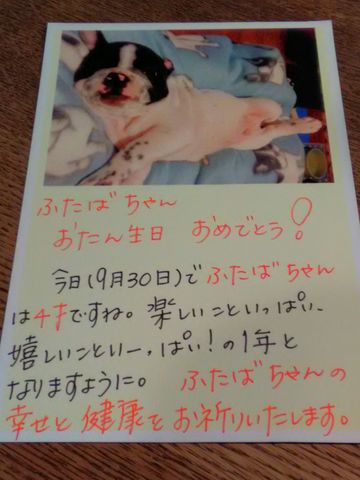 ふたばちゃん
おたん生日 おめでとう!
今日(9月30日)でふたばちゃん
は4才ですね。楽しいこといっぱい、
嬉しいこといーっぱい!の1年と
なりますように。 ふたばちゃんの
幸せと健康をお祈りいたします。